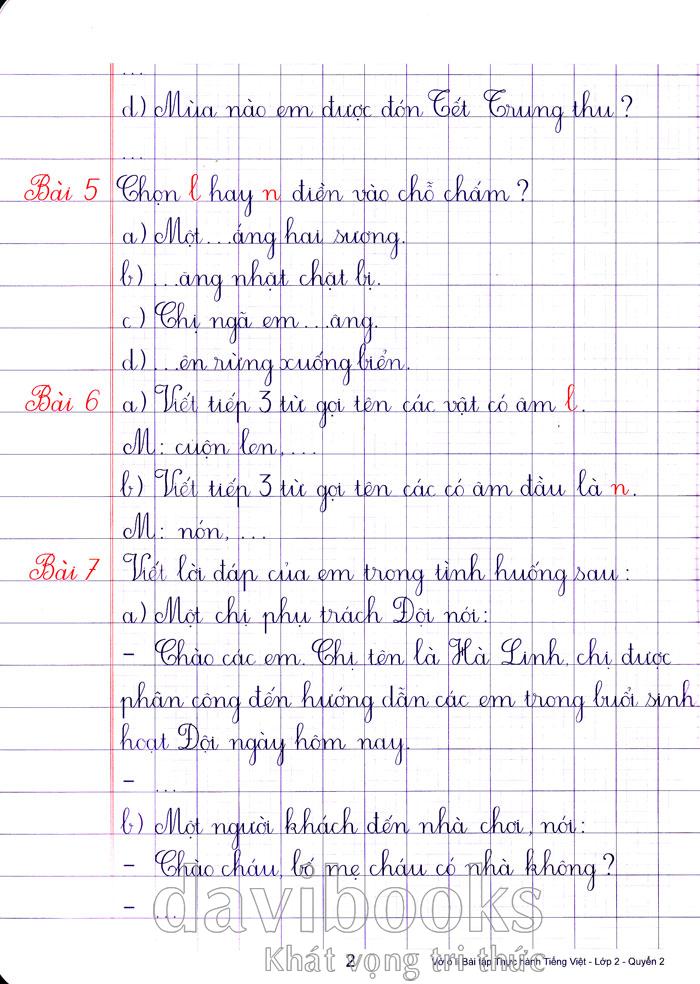 ...
d) Mùa nào em được đón Tết Trung thu ?
...
Bài 5 Chọn l hay n điền vào chỗ chấm ?
a) Một ...ắng hai sương.
b) ...ăng nhặt chặt bị.
c) Chị ngã em ...âng.
d) ...ên rừng xuống biển.
Bài 6 a) Viết tiếp 3 từ gọi tên các vật có âm l.
M: cuộn len, ...
b) Viết tiếp 3 từ gọi tên các có âm đầu là n.
M: nón, ...
Bài 7 Viết lời đáp của em trong tình huống sau :
a) Một chị phụ trách Đội nói :
- Chào các em. Chị tên là Hà Linh, chị được
phân công đến hướng dẫn các em trong buổi sinh
hoạt Đội ngày hôm nay.
- ...
b) Một người khách đến nhà chơi, nói :
- Chào cháu, bố mẹ cháu có nhà không ?
- ...
davibooks
Khát vọng tri thức
2 Vở ô li Bài tập Thực hành Tiếng Việt - Lớp 2 - Quyển 2